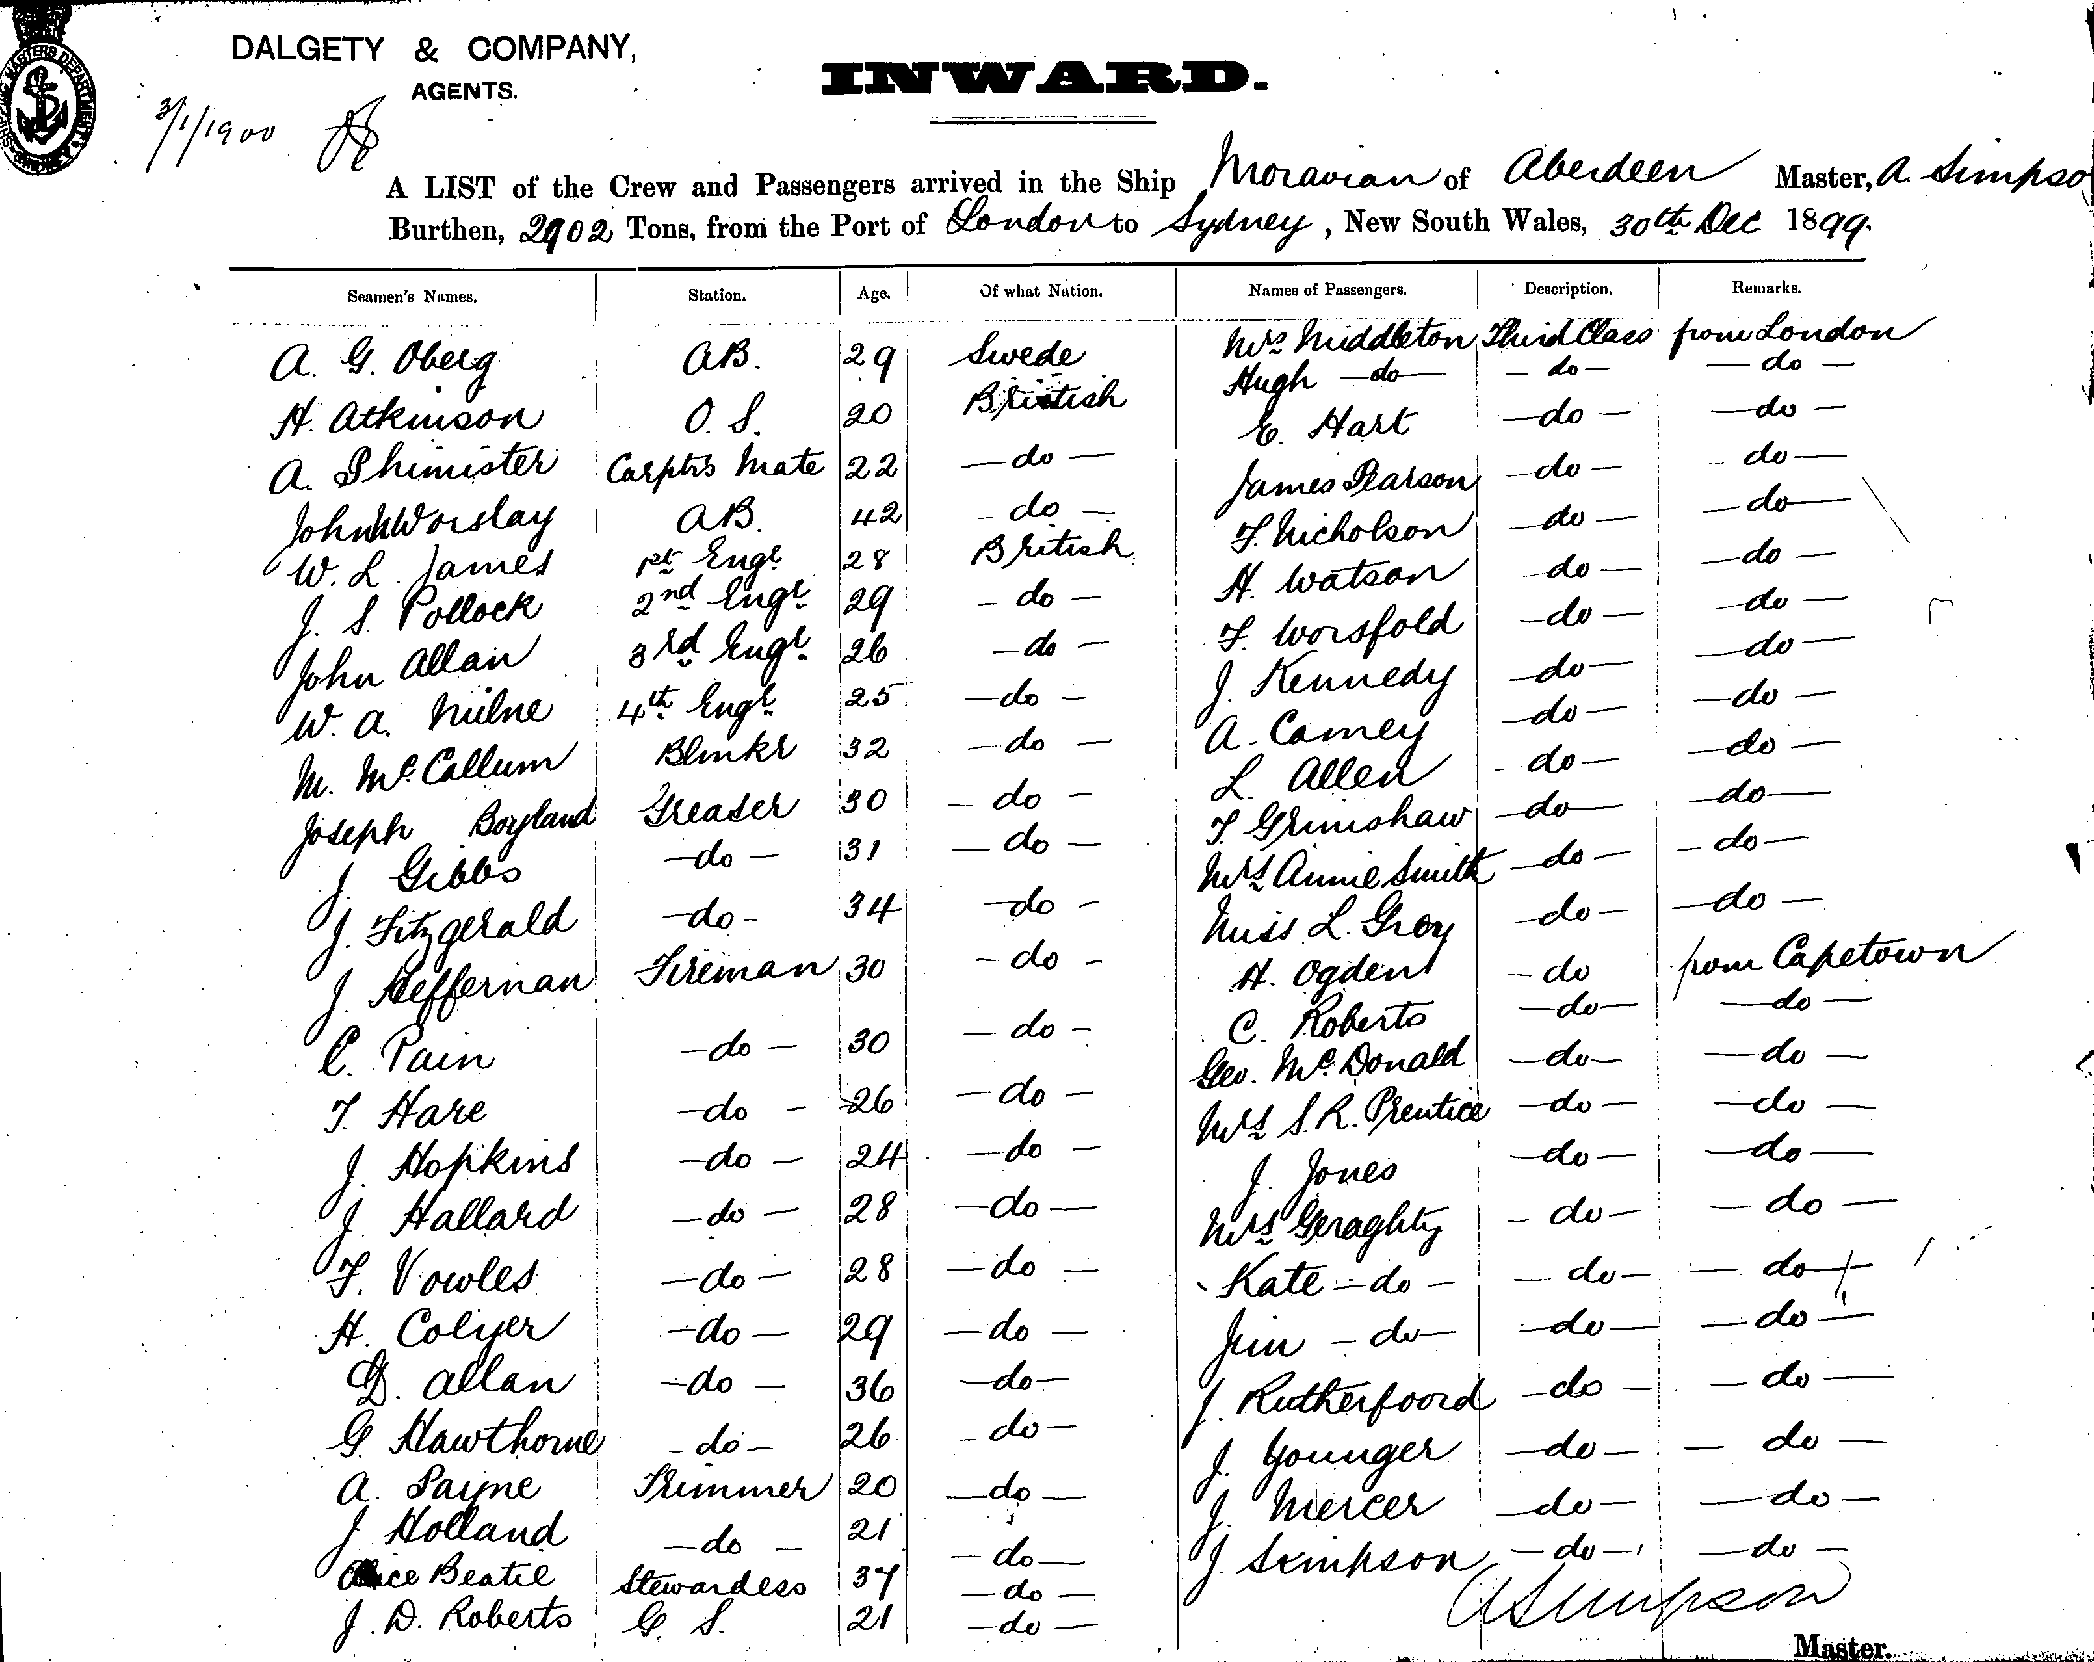 DALGETY & COMPANY,
AGENTS.
INWARD.
3/1/1900
A LIST of the Crew and Passengers arrived in the Ship Moravian of Aberdeen Master, A. Simpso
Burthen, 2902 Tons, from the Port of London to Sydney, New South Wales, 30th Dec 1899.
Seamen's Names. Station. Age. Of what Nation. Names of Passengers. Description. Remarks.
A. G. Oberg AB. 29 Swede Mrs Middleton Third Class from London
H. Atkinson O. S. 20 British Hugh —do— —do— —do—
A. Shimister Carptrs Mate 22 —do— E. Hart —do— —do—
John Worslay AB. 42 —do— James Pearson —do— —do—
W. L. James 1st Engr 28 British F. Nicholson —do— —do—
J. S. Pollock 2nd Engr 29 —do— H. Watson —do— —do—
John Allan 3rd Engr 26 —do— F. Worsfold —do— —do—
W. A. Milne 4th Engr 25 —do— J. Kennedy —do— —do—
M. McCallum 32 —do— A. Camey —do— —do—
Joseph Boyland Greaser 30 —do— L. Allen —do— —do—
J. Gibbs —do— 31 —do— T. Grimshaw —do— —do—
J. Fitzgerald —do— 34 —do— Mrs Annie Smith —do— —do—
J. Heffernan Fireman 30 —do— Miss L. Grey —do— —do—
C. Pain —do— 30 —do— H. Ogden —do from Capetown
T. Hare —do— 26 —do— C. Roberts —do— —do—
J. Hopkins —do— 24 —do— Geo. McDonald —do— —do—
J. Hallard —do— 28 —do— Mrs S. R. Prentice —do— —do—
F. Vowles —do— 28 —do— J. Jones —do— —do—
H. Colyer —do— 29 —do— Mrs Geraghty —do— —do—
D. Allan —do— 36 —do— Kate —do— —do— —do—
G. Hawthorne —do— 26 —do— Jim —do— —do— —do—
A. Payne Trimmer 20 —do— J. Rutherfoord —do— —do—
J. Holland —do— 21 —do— J. Younger —do— —do—
Alice Beatie Stewardess 37 —do— J. Mercer —do— —do—
J. D. Roberts G. S. 21 —do— J. Simpson —do— —do—
A Simpson
Master.